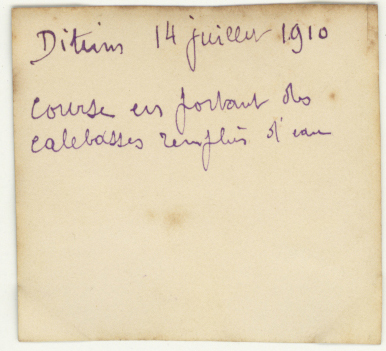 Ditinn 14 juillet 1910
Course en portant des
calebasses remplies d'eau